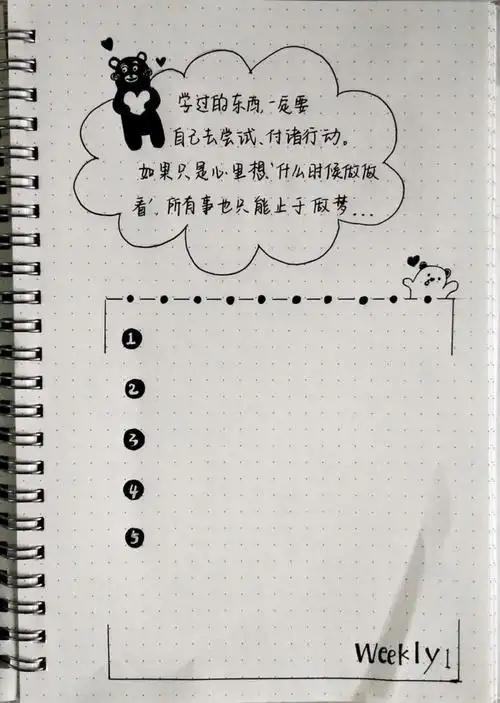 学过的东西,一定要
自己去尝试、付诸行动。
如果只是心里想‘什么时候做做
看’,所有事也只能止于做梦...
1
2
3
4
5
Weekly 1